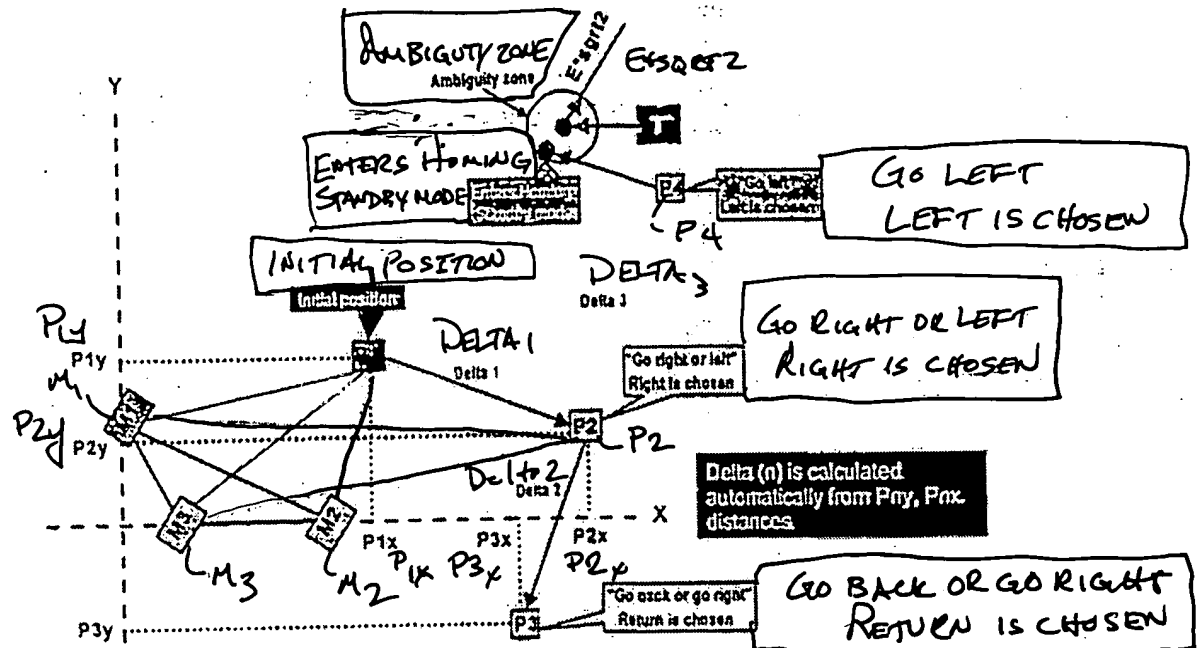 AMBIGUTY ZONE
Ambiguity zone
E*sqrt2
E*SQRT2
Y
T
ENTERS HOMING
STANDBY MODE
P4
P4
"Go left"
Left is chosen
GO LEFT
LEFT IS CHOSEN
INITIAL POSITION
Initial position
DELTA 3
Delta 3
P1y
P1y
DELTA 1
Delta 1
"Go right or left"
Right is chosen
GO RIGHT OR LEFT
RIGHT IS CHOSEN
M1
M1
P2y
P2y
P2
P2
Delta 2
Delta 2
Delta (n) is calculated
automatically from Pny, Pnx
distances.
M3
M2
X
P1x
P3x
P2x
M3
M2
P1x
P3x
P2x
P3y
P3
"Go back or go right"
Return is chosen
GO BACK OR GO RIGHT
RETURN IS CHOSEN